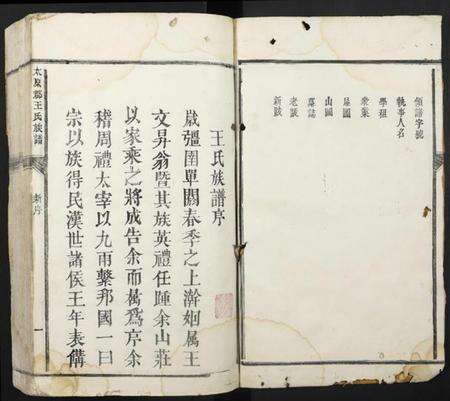 領譜字號
執事人名
學租
衆業
屋圖
山圖
墓誌
老跋
新跋
王氏族譜序
歲彊圉單閼春季之上澣姻属王
文昇翁暨其族英禮任踵余山莊
以家乘之將成告余而属爲序余
稽周禮太宰以九兩繫邦國一曰
宗以族得民漢世諸侯王年表備
太原郡王氏族譜
新序
一